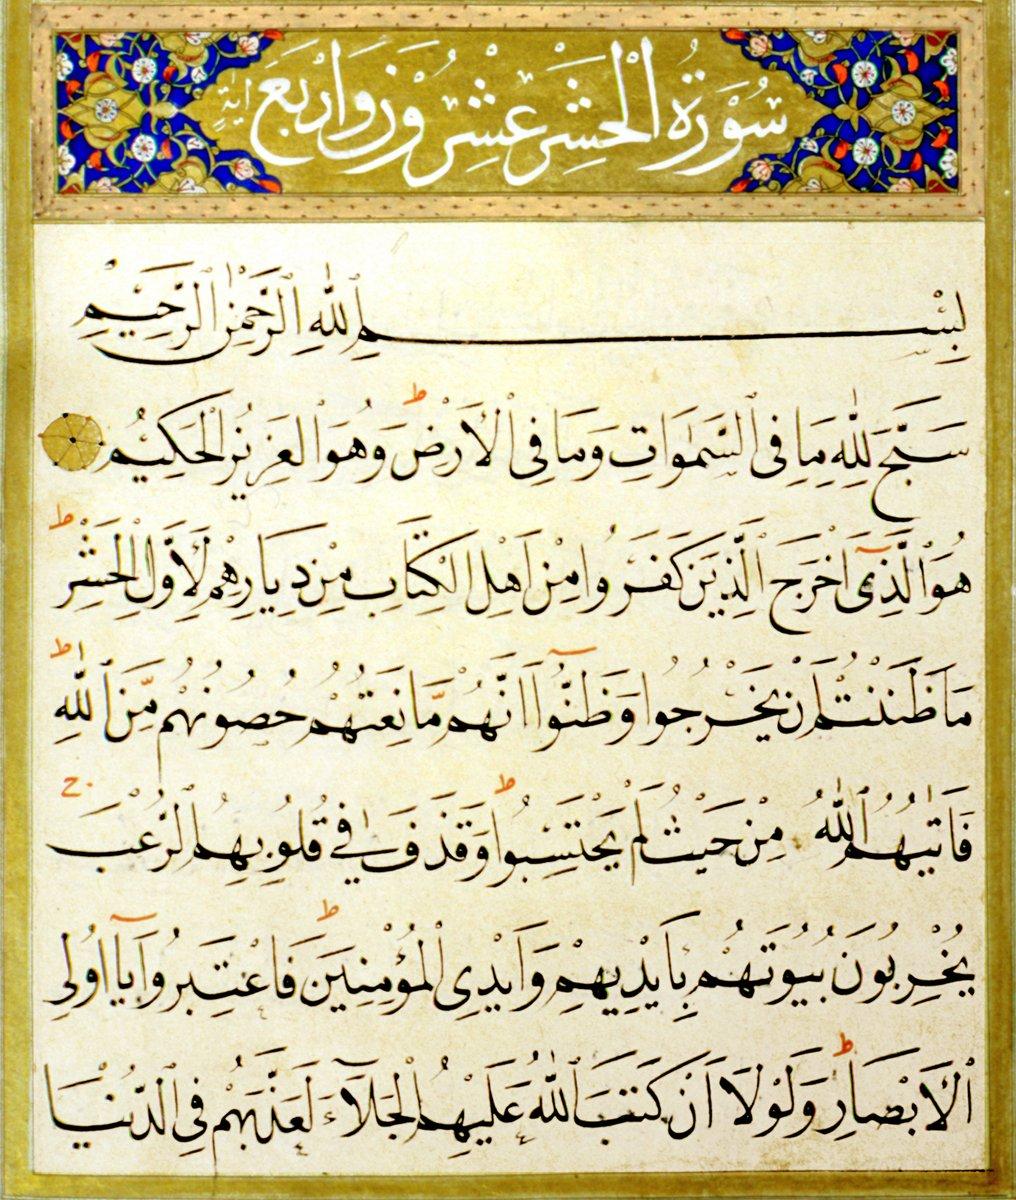 سُوْرَةُ الْحَشْرِ عِشْرُوْنَ وَاَرْبَعَ اٰيَةٍ
بِسْمِ ٱللّٰهِ ٱلرَّحْمٰنِ ٱلرَّحِيْمِ
سَبَّحَ لِلّٰهِ مَا فِى ٱلسَّمٰوَاتِ وَمَا فِى ٱلْاَرْضِ ط وَهُوَ ٱلْعَزِيْزُ ٱلْحَكِيْمُ
هُوَ ٱلَّذِىٓ اَخْرَجَ ٱلَّذِيْنَ كَفَرُوا مِنْ اَهْلِ ٱلْكِتَابِ مِنْ دِيَارِهِمْ لِاَوَّلِ ٱلْحَشْرِ ط
مَا ظَنَنْتُمْ اَنْ يَخْرُجُوا وَظَنُّوٓا اَنَّهُمْ مَّانِعَتُهُمْ حُصُونُهُمْ مِّنَ ٱللّٰهِ ط
فَاَتٰيهُمُ ٱللّٰهُ مِنْ حَيْثُ لَمْ يَحْتَسِبُوا ط وَقَذَفَ فِى قُلُوبِهِمُ ٱلرُّعْبَ ج
يُخْرِبُونَ بُيُوتَهُمْ بِاَيْدِيهِمْ وَاَيْدِى ٱلْمُؤْمِنِينَ ط فَاعْتَبِرُوا يَآ اُولِى
ٱلْاَبْصَارِ ط وَلَوْلَا اَنْ كَتَبَ ٱللّٰهُ عَلَيْهِمُ ٱلْجَلَآءَ لَعَذَّبَهُمْ فِى ٱلدُّنْيَا